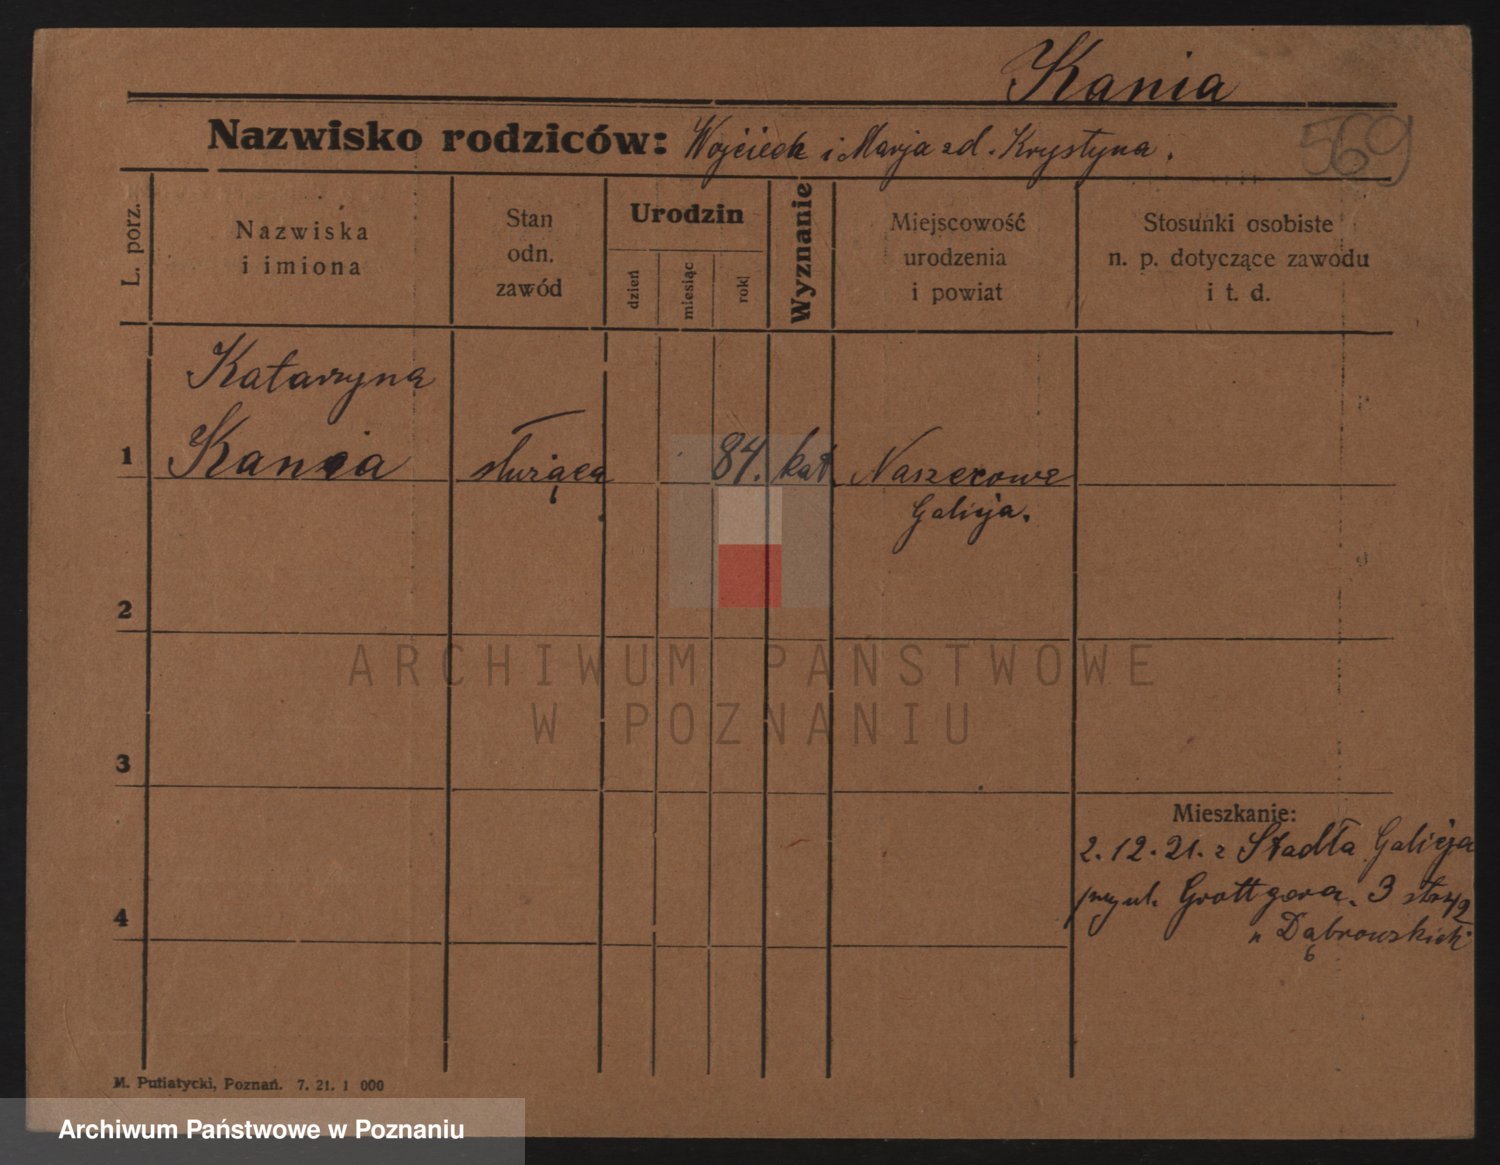 Kania
Nazwisko rodziców: Wojciech i Marja zd. Krystyna.
569
L. porz.
Nazwiska
i imiona
Stan
odn.
zawód
Urodzin
dzień
miesiąc
rok
Wyznanie
Miejscowość
urodzenia
i powiat
Stosunki osobiste
n. p. dotyczące zawodu
i t. d.
Katarzyna
1 Kania służąca 84. kat Naszcrowe
Galicja.
2
3
4
Mieszkanie:
2.12.21. z Stadła Galicja
ul. Grottgera. 3
Dąbrowskich
M. Putiatycki, Poznań. 7. 21. 1 000
ARCHIWUM PAŃSTWOWE
W POZNANIU
Archiwum Państwowe w Poznaniu